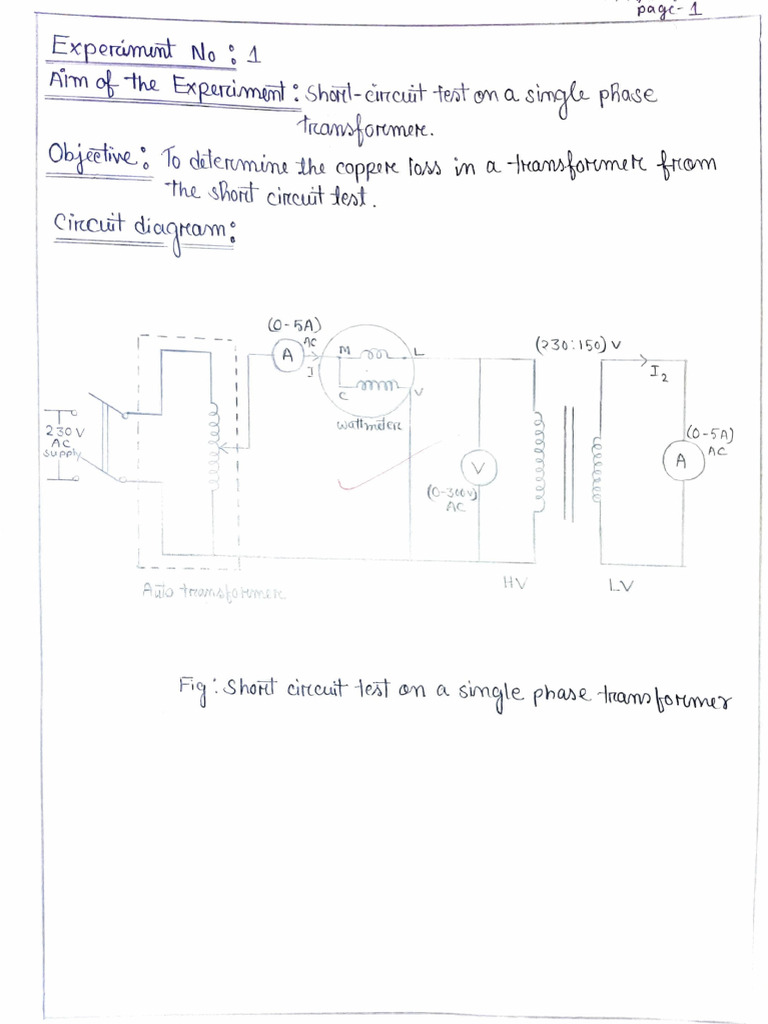 page-1
Experiment No: 1
Aim of the Experiment: Short-circuit test on a single phase
transformer.
Objective: To determine the copper loss in a transformer from
the short circuit test.
Circuit diagram:
(0-5A)
AC
A
I
M
L
C
V
wattmeter
(230:150) V
I2
230V
AC
supply
V
(0-300V)
AC
(0-5A)
AC
A
HV
LV
Auto transformer
Fig: Short circuit test on a single phase transformer